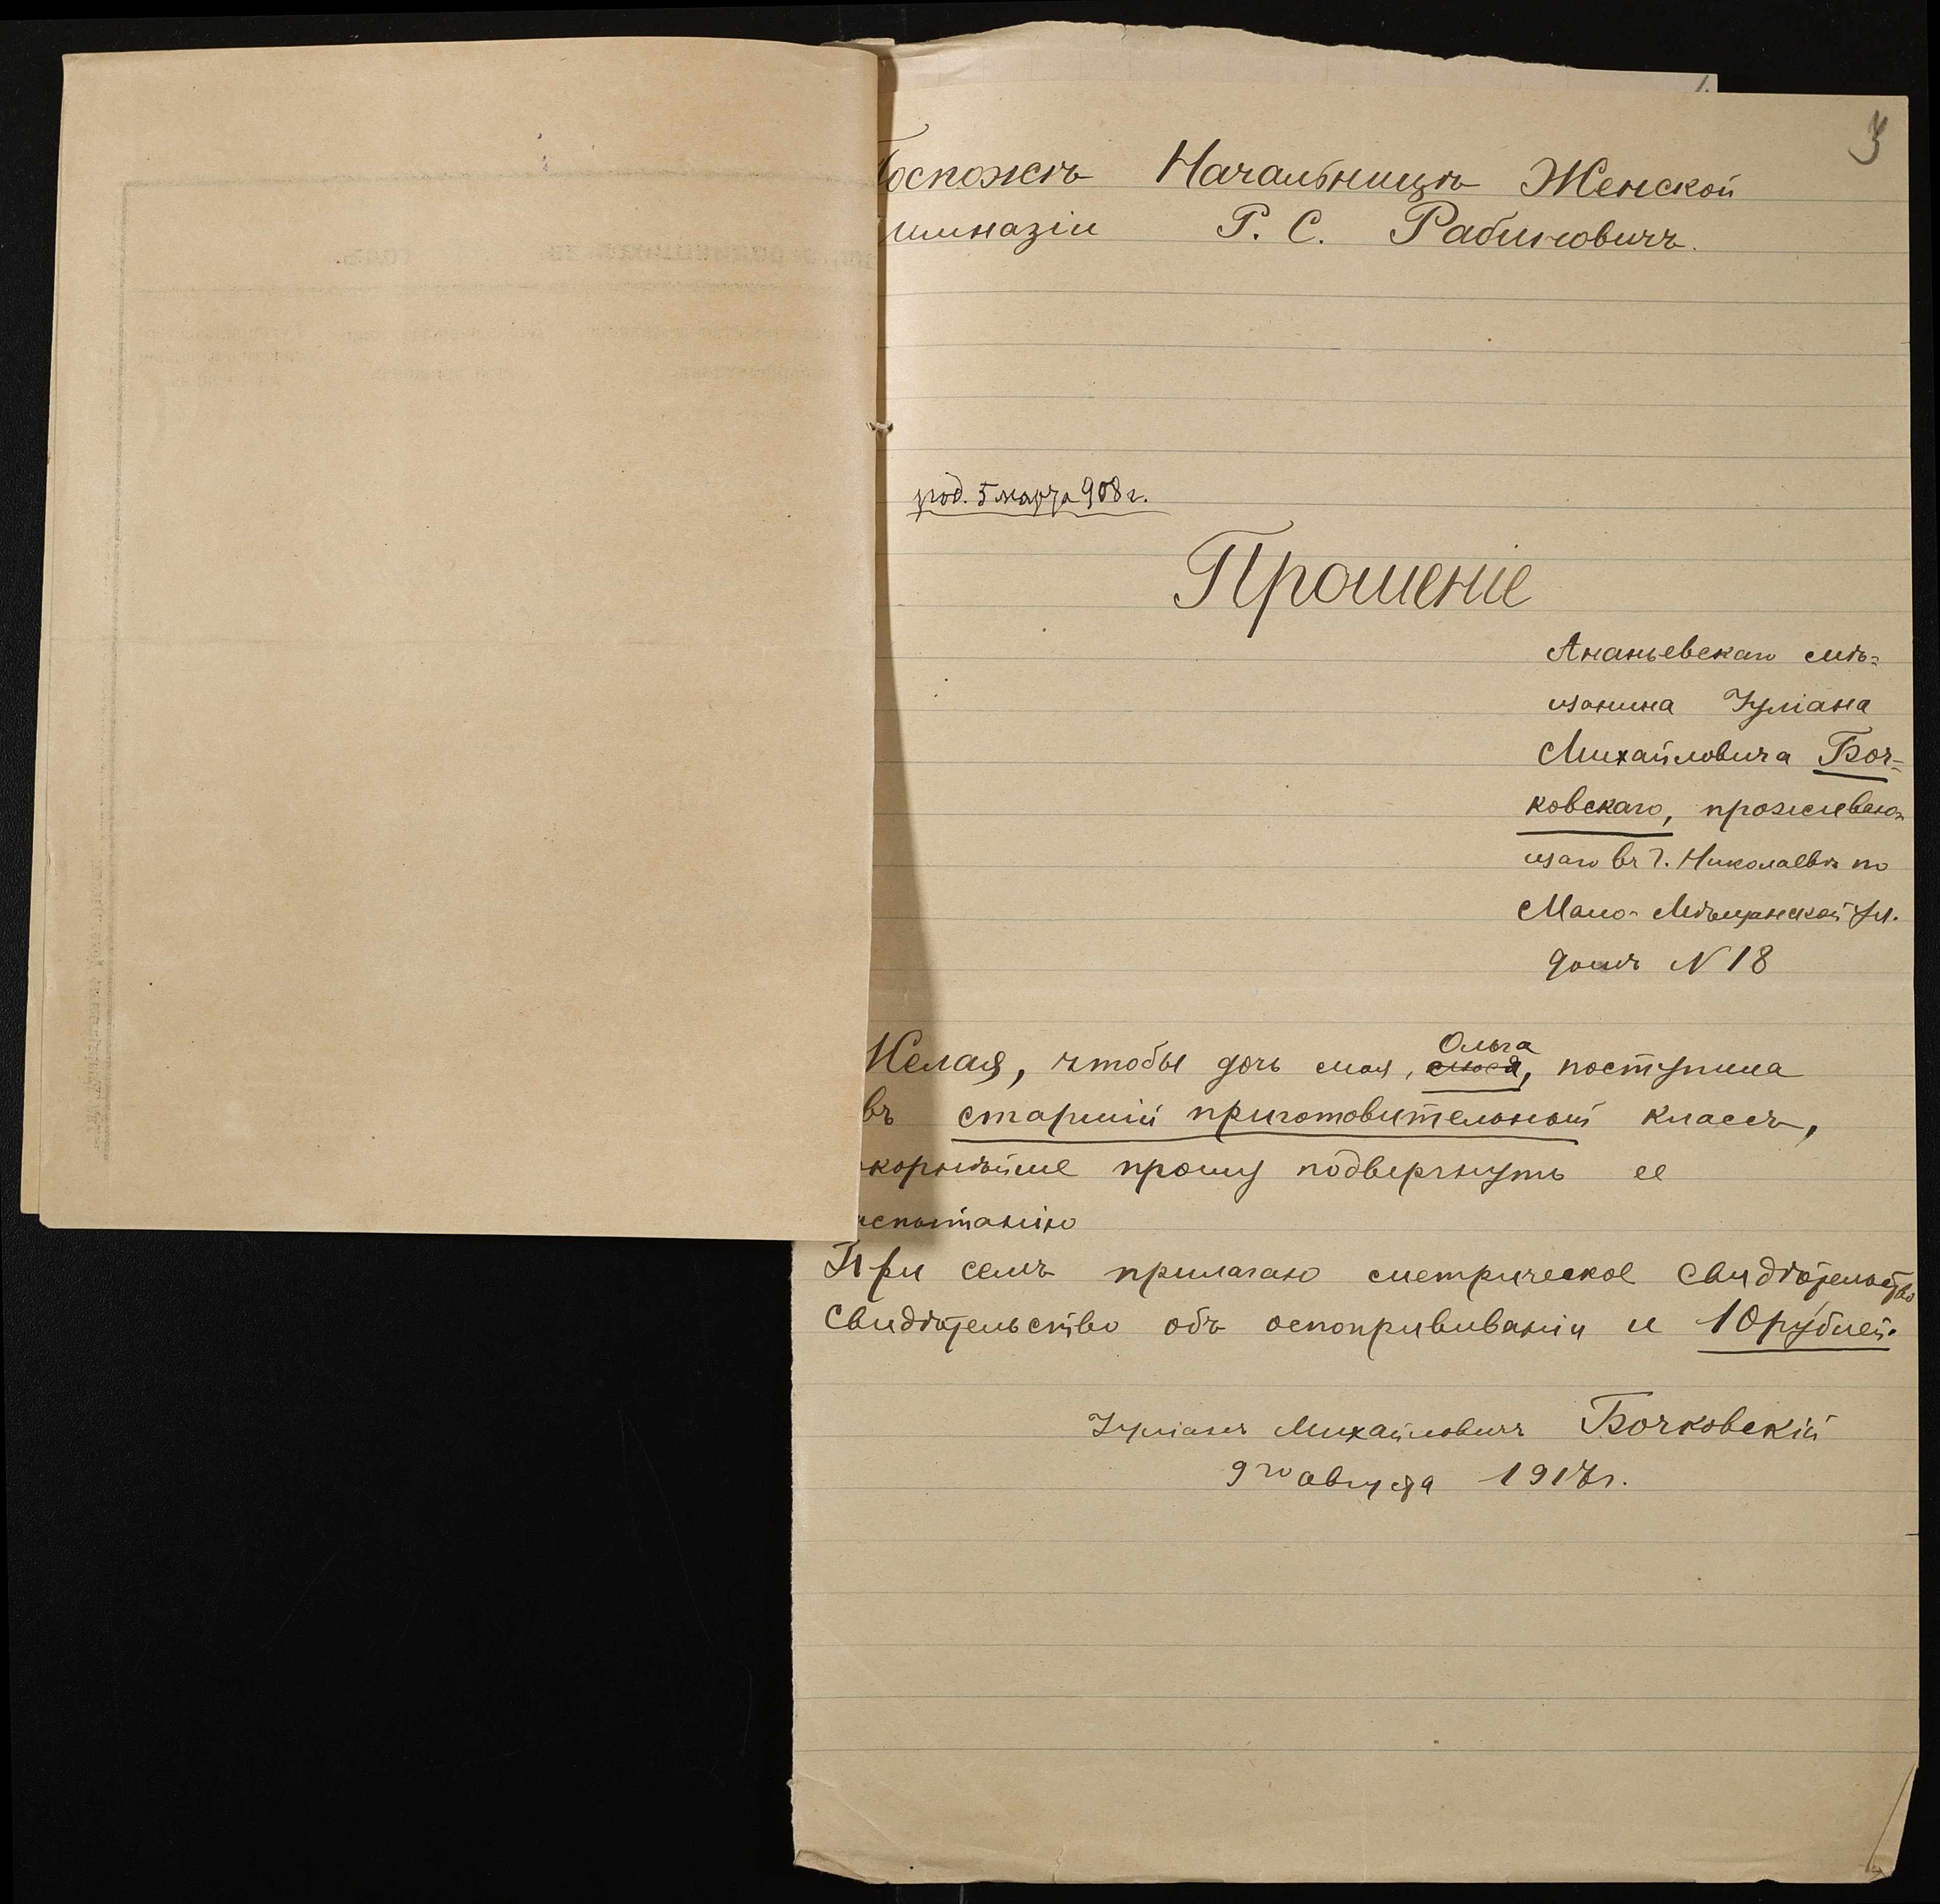 3
Госпожѣ Начальницѣ Женской
имназіи Р. С. Рабиновичъ.
род. 5 марта 908 г.
Прошеніе
Ананьевскаго мѣ=
щанина Іуліана
Михайловича Боч=
ковскаго, проживаю=
щаго въ г. Николаевѣ по
Мало-Мѣщанской ул.
домъ N 18
Желая, чтобы дочь моя, Ольга, поступила
въ старшій приготовительный классъ,
корнѣйше прошу подвергнуть ее
испытанію
При семъ прилагаю метрическое свидѣтельство
свидѣтельство объ оспопрививаніи и 10 рублей.
Іуліанъ Михайловичъ Бочковскій
9го августа 1917 г.